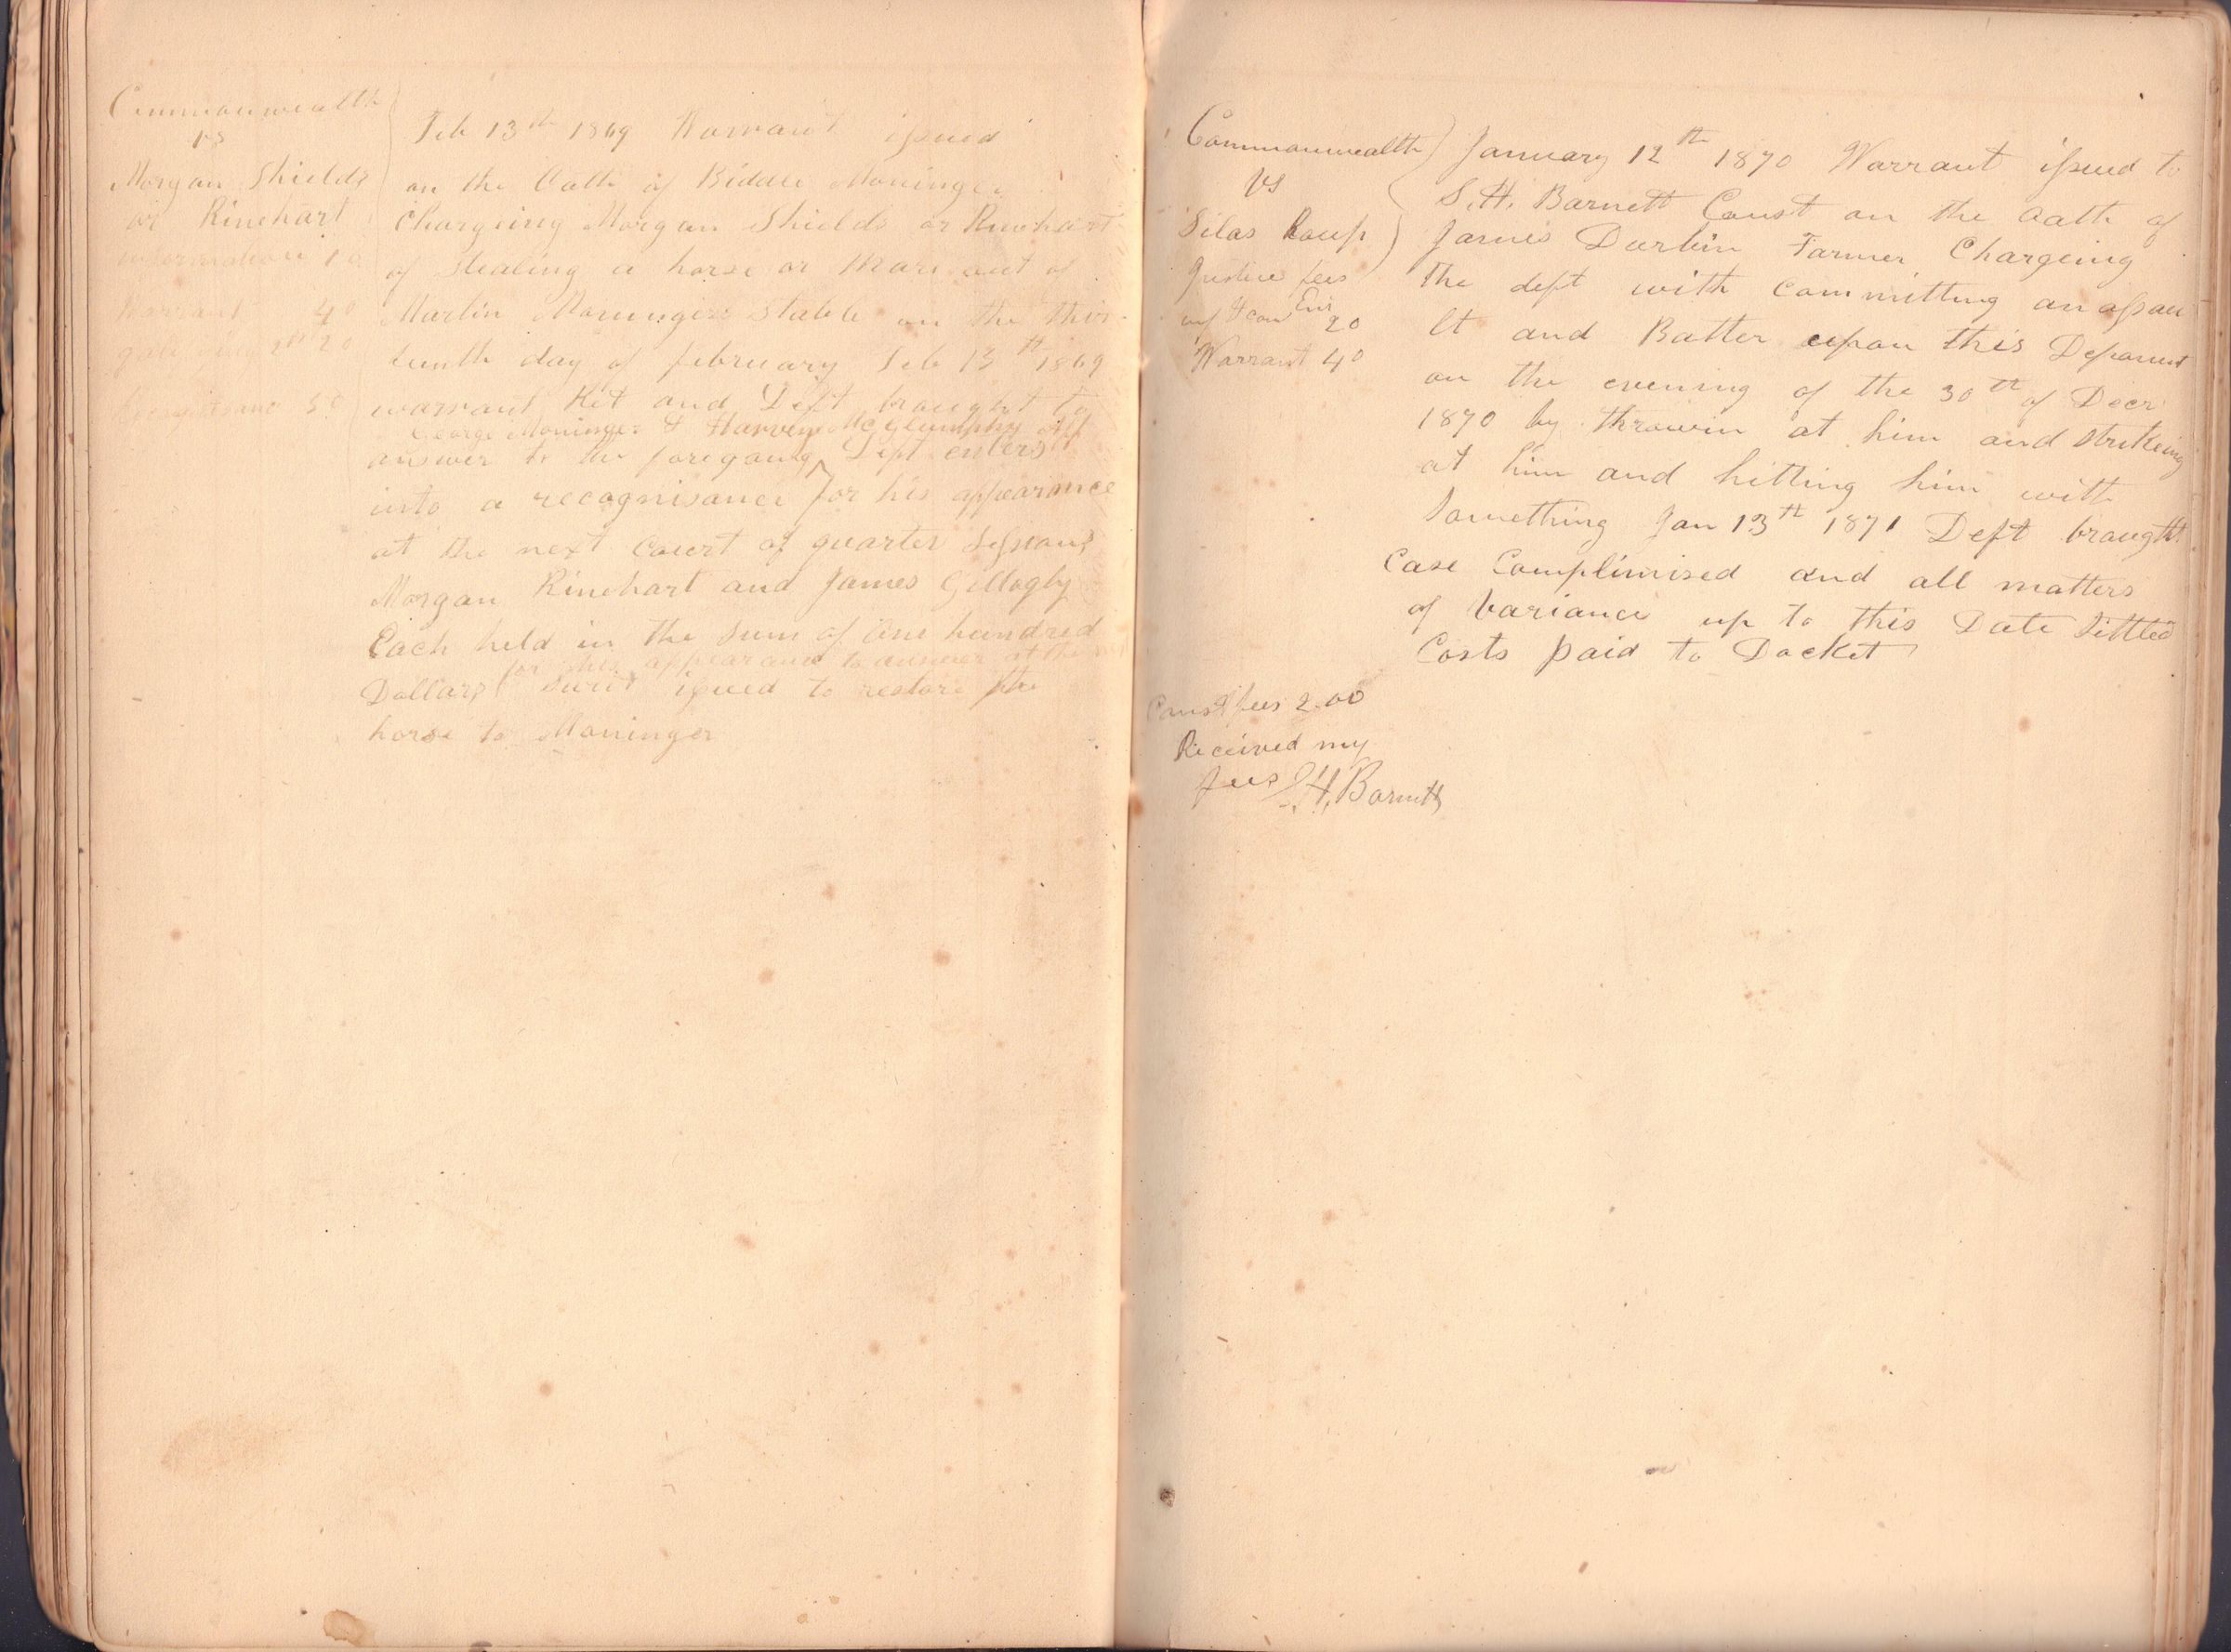 Commonwealth
vs
Morgan Shields
or Rinehart
information 10
Warrant 40
20
Recognisance 50
Feb 13th 1869 Warrant issued
on the Oath of Biddle Moninger
Chargeing Morgan Shields or Rinehart
of stealing a horse or Mare out of
Martin Moningers Stable on the thir-
teenth day of february Feb 13th 1869
warrant Ret and Deft braught to
George Moninger & Harvey McGlumphy
answer to the foregoing Deft enters
into a recognisance for his appearance
at the next Court of quarter Sessions
Morgan Rinehart and James Gollogly
Each held in the Sum of One hundred
for his appearance to answer at the
Dollars issued to restore the
horse to Moninger
Commonwealth
vs
Silas Roup
Justice fees
20
Warrant 40
January 12th 1870 Warrant issued to
S. H. Barnett Const on the oath of
James Durbin Farmer Chargeing
the deft with committing an assau
lt and Batter upon this Deponent
on the evening of the 30th of Decr
1870 by throwin at him and strikeing
at him and hitting him with
Something Jan 13th 1871 Deft braught
Case Complimised and all matters
of variance up to this Date Sittled
Costs paid to Docket
Const fees 2.00
Received my
fees S. H. Barnett